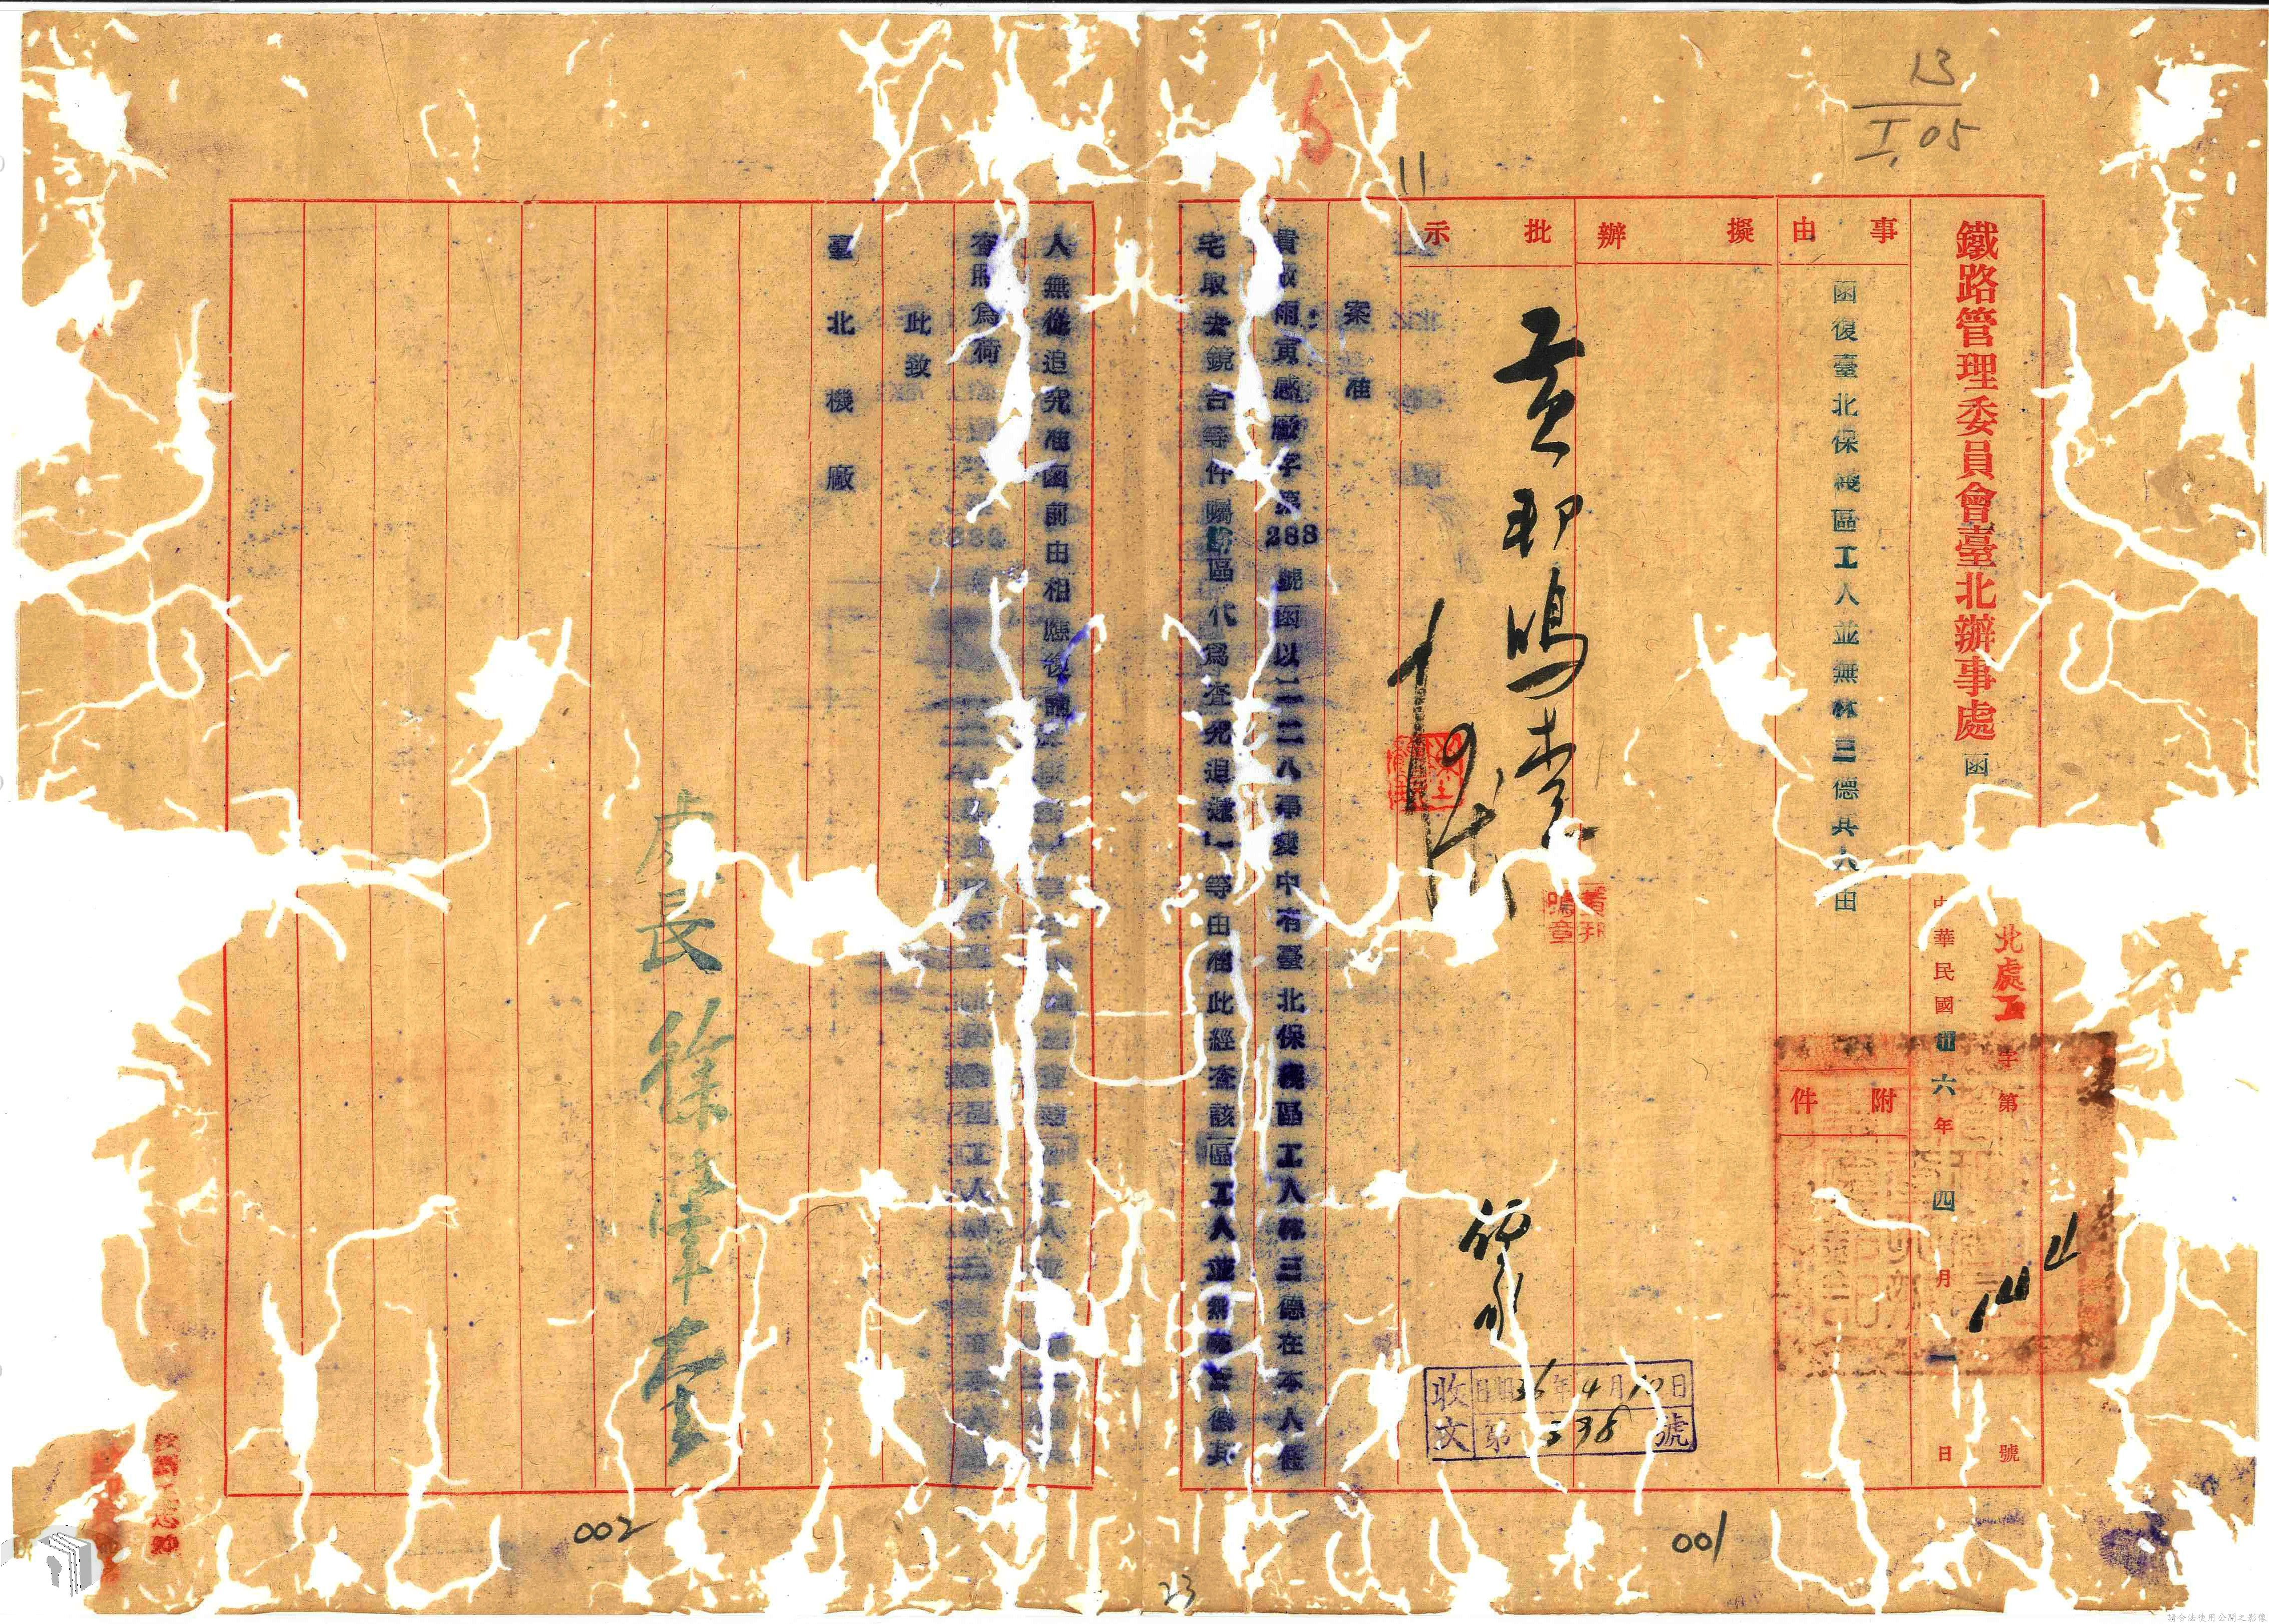 13
I.05
5
11
鐵路管理委員會臺北辦事處函
北處工字第號
中華民國卅六年四月一日
事由
函復臺北保機區工人並無林三德其人由
附件
擬辦
批示
黃邦鳴章
收文
日期36年4月10日
第338號
案准
貴廠雨寅感廠字第288號函以二二八事變中有臺北保機區工人林三德在本人住
宅取去鏡台等件囑該區代為查究追還一等由准此經查該區工人並無林三德其
人無從追究准函前由相應復請
查照為荷
此致
臺北機廠
處長徐
001
002
23
請合法使用公開之影像